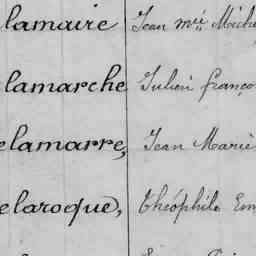 lamaire Jean Mie Miche
lamarche Julien franço
elamarre, Jean Marie
elaroque, théophile Em